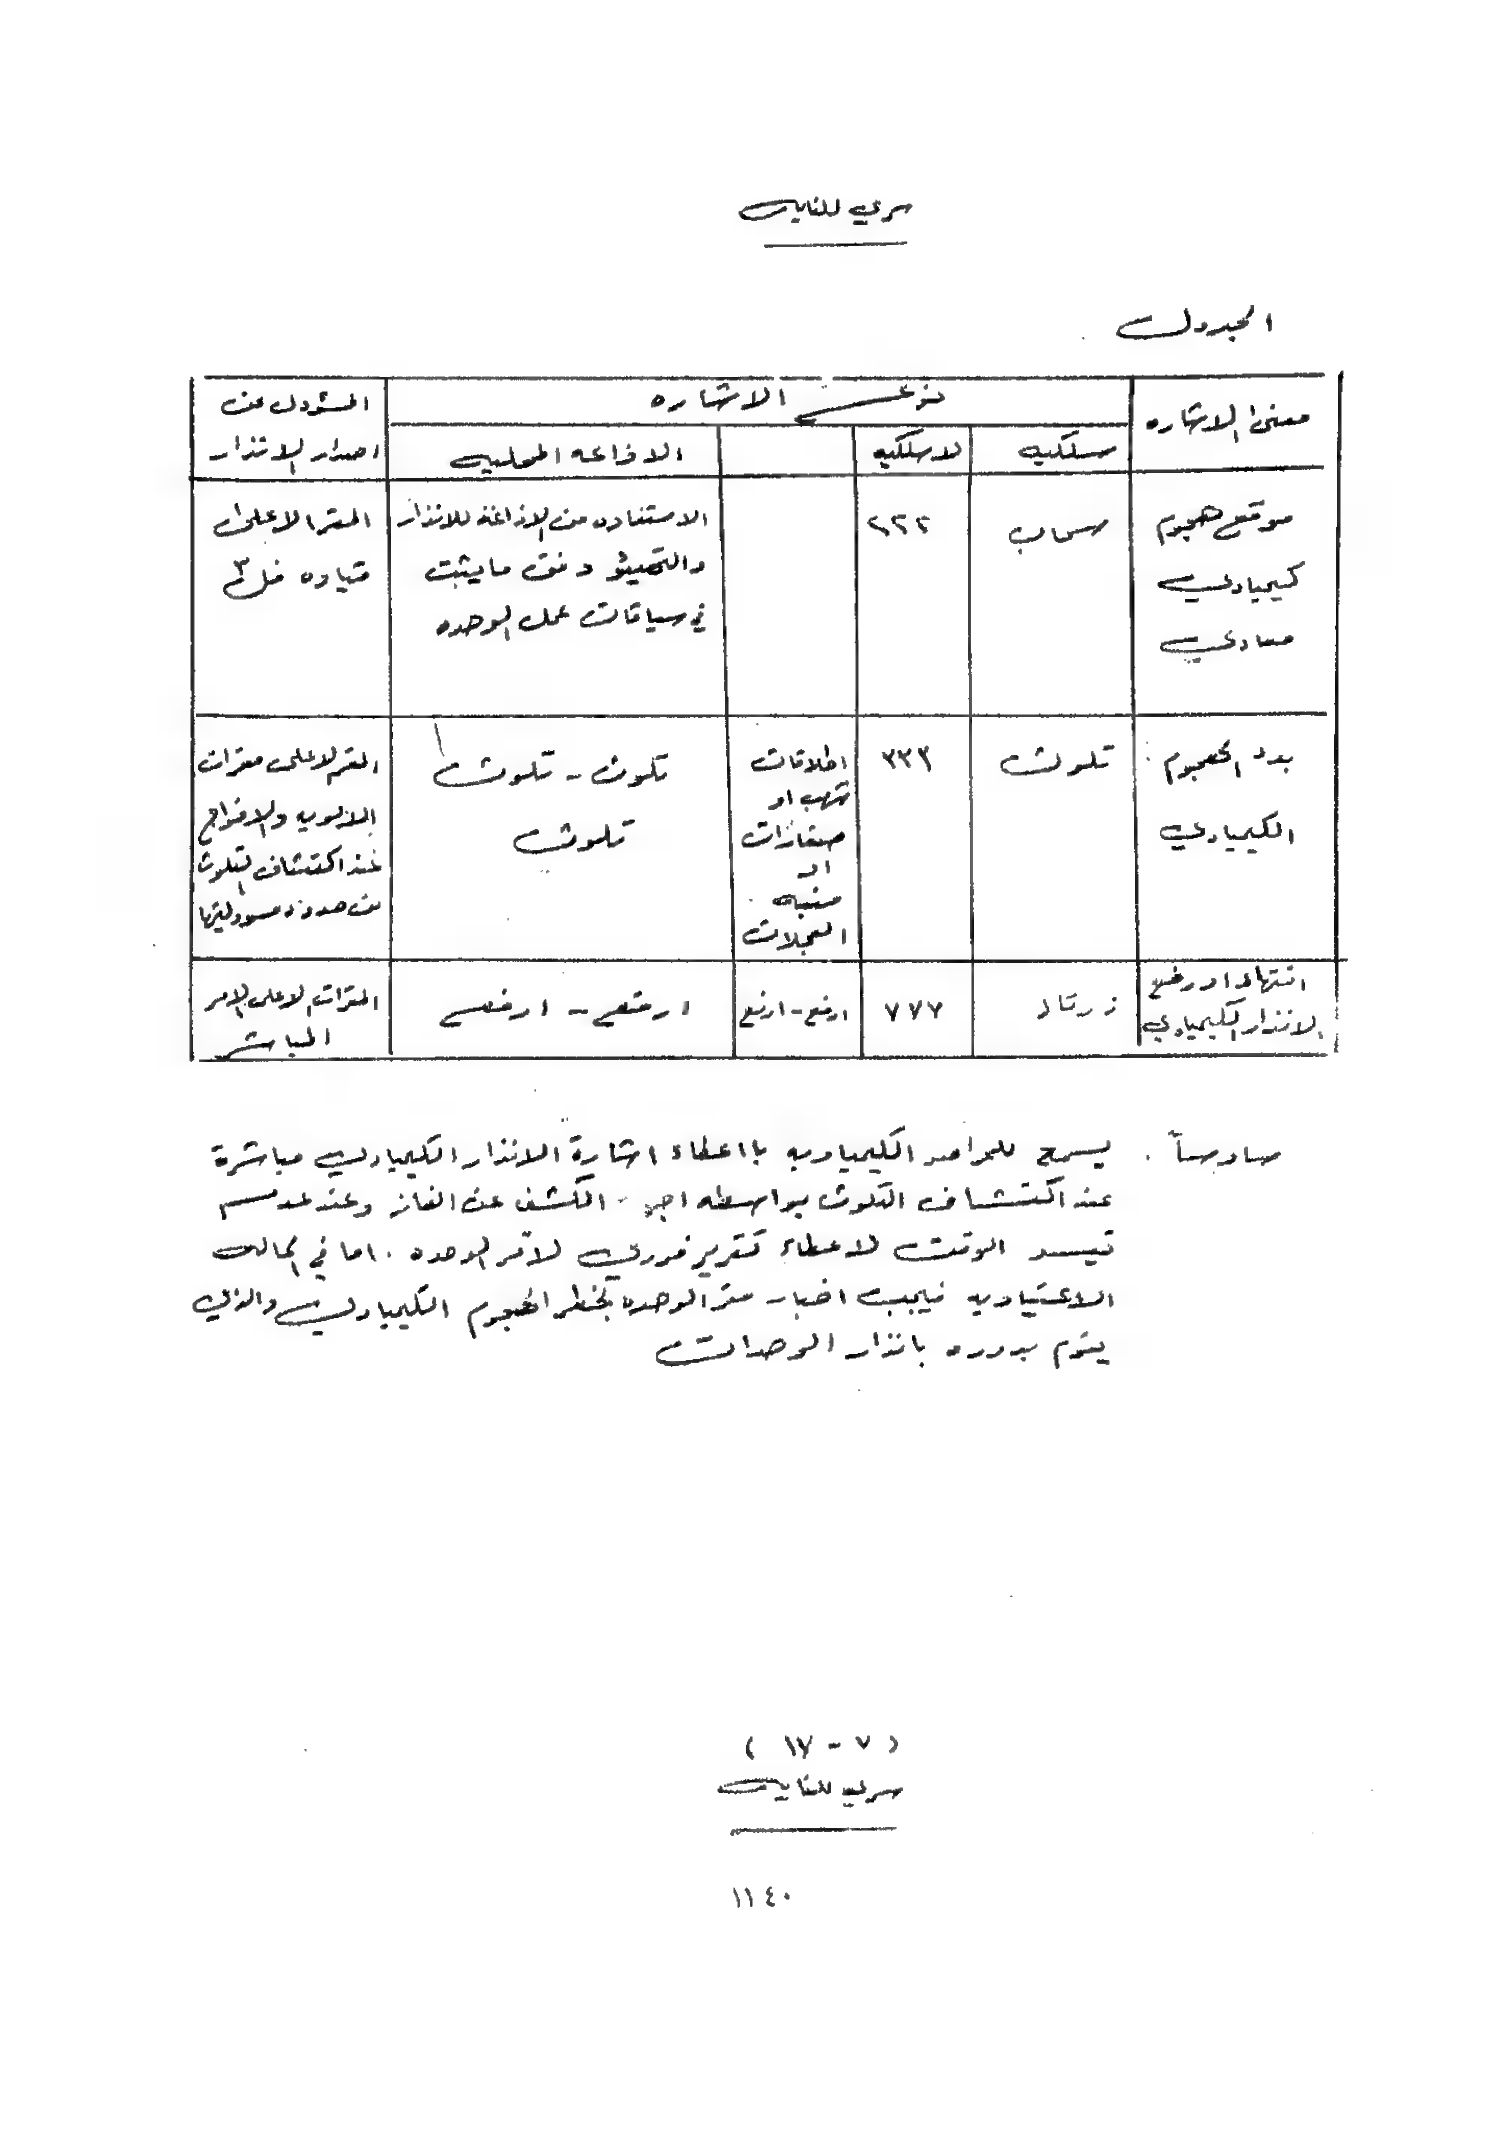 سري للغاية
الجدول
معنى الاشاره | نوع الاشاره | المسؤول عن اصدار الانذار
سلكيه | لاسلكيه | | الاذاعه المحليه
موقع هجوم كيميادي معادي | سحاب | ٢٢٢ | | الاستفاده من الاذاعة للانذار والتهيئو وفق مايثبت في سياقات عمل الوحده | المقر الاعلى قياده فل ٣
بدء الهجوم الكيميادي | تلوث | ٣٣٣ | اطلاقات شهب او صفارات او منبه العجلات | تلوث - تلوث تلوث | المقر الاعلى مقرات الالويه والافواج عند اكتشاف التلوث من حدود مسووليتها
انتهاء او رفع الانذار الكيميادي | زرقاء | ٧٧٧ | ارفع - ارفع | ارفع - ارفع | المقرات الاعلى الامر المباشر
سادساً . يسمح للمراصد الكيمياويه بااعطاء اشارة الانذار الكيميادي مباشرة
عند اكتشاف التلوث بواسطه الكشف عن الغاز وعند عدم
تيسر الوقت لاعطاء تقرير فوري لآمر الوحده . اما في الحاله
الاعتياديه فيجب اخبار مقر الوحده بخطر الهجوم الكيميادي والذي
يقوم بدوره بانذار الوحدات
( ٧ - ١٧ )
سري للغاية
١١٤٠